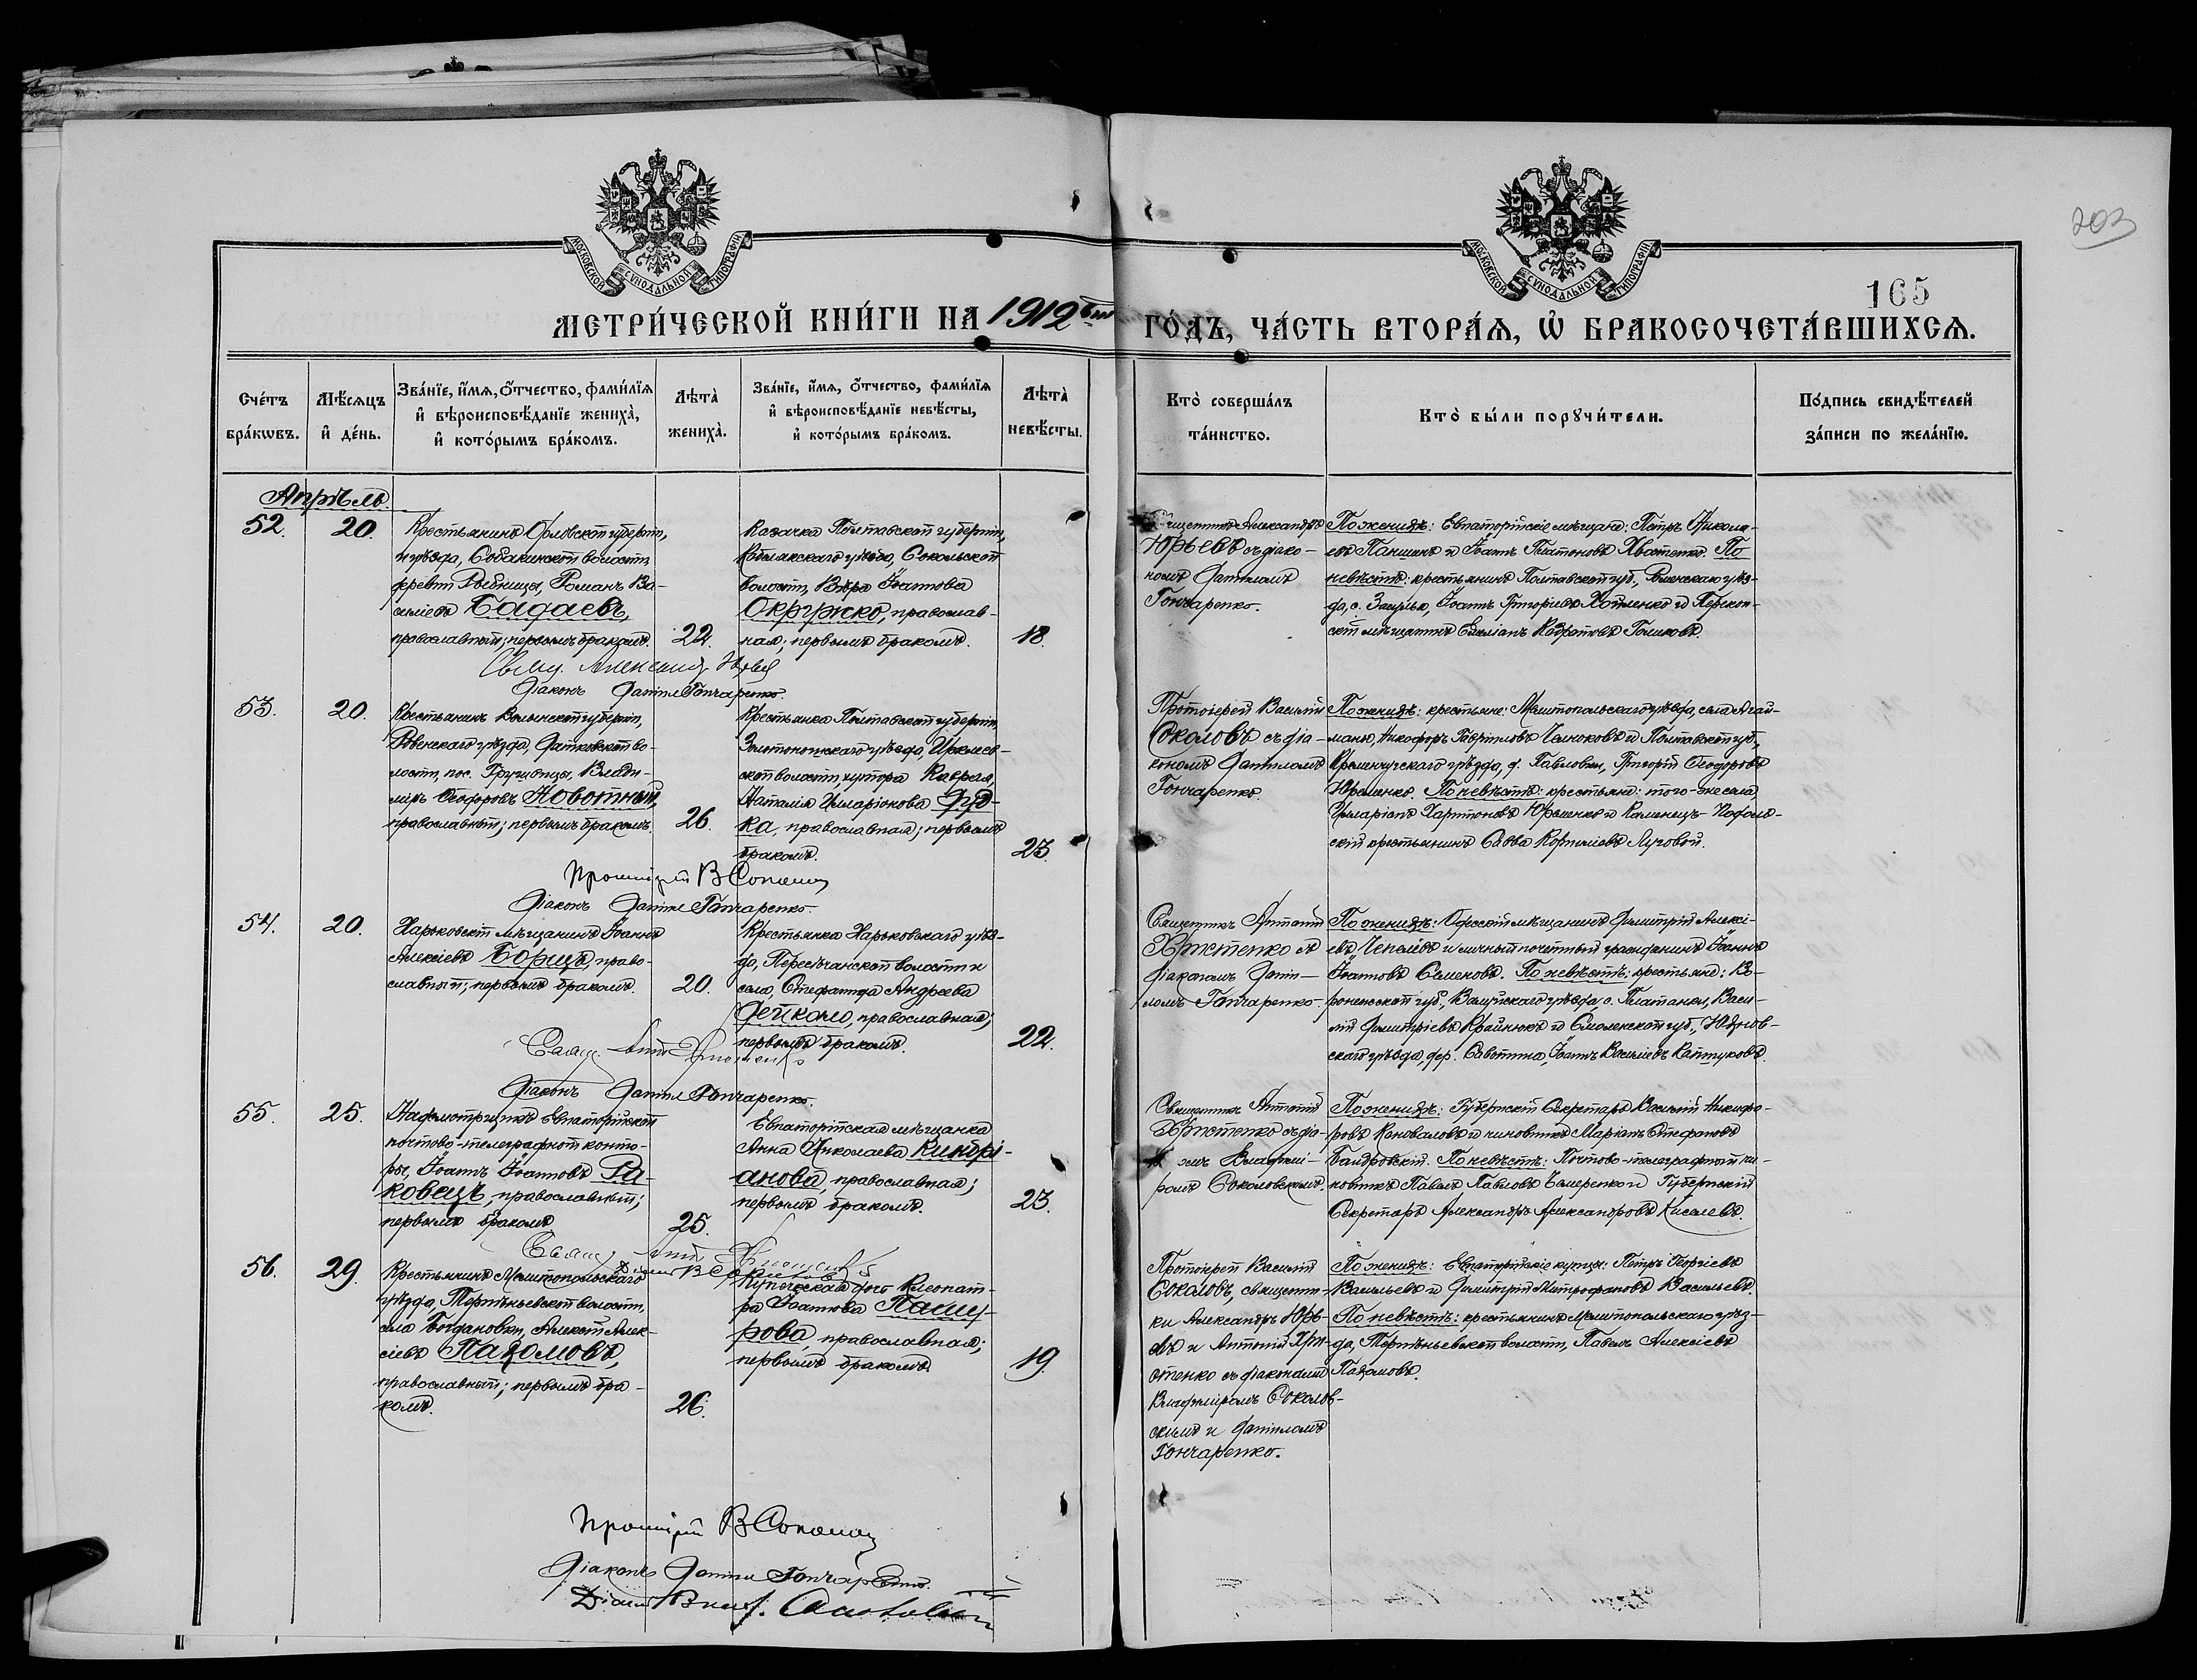 203
МОСКОВСКОЙ СУНОДАЛЬНОЙ ТИПОГРАФІИ
МОСКОВСКОЙ СУНОДАЛЬНОЙ ТИПОГРАФІИ
165
МЕТРИ́ЧЕСКОЙ КНИ́ГИ НА 1912
ГО́ДЪ, ЧА́СТЬ ВТОРА́Я, Ѡ БРАКОСОЧЕТА́ВШИХСѦ.
Сче́тъ бра́кѡвъ.
Мѣ́сѧцъ и҆ де́нь.
Зва́нїе, и҆́мѧ, ѻ҆́тчество, фами́лїѧ
и҆ вѣроисповѣ́данїе жениха̀,
и҆ кото́рымъ бра́комъ.
Лѣта̀ жениха̀.
Зва́нїе, и҆́мѧ, ѻ҆́тчество, фами́лїѧ
и҆ вѣроисповѣ́данїе невѣ́сты,
и҆ кото́рымъ бра́комъ.
Лѣта̀ невѣ́сты.
Кто̀ соверша́лъ та́инство.
Кто̀ бы́ли порꙋчи́тели.
По́дпись свидѣ́телей за́писи по жела́нїю.
Апрѣль.
52.
20.
Крестьянинъ Орловской губерніи,
и уѣзда, Собакинской волости,
деревни Ва-
сильевъ Бадаевъ,
православный; первымъ бракомъ.
22.
Казачка Полтавской губерніи,
Кобелякскаго уѣзда, Сокольской
волости, Вѣра Іоаннова
Окружко, православ-
ная; первымъ бракомъ.
18.
Священникъ Александръ
Юрьевъ съ діако-
номъ Даніиломъ
Гончаренко.
По женихѣ: Евпаторійскіе мѣщане: Петръ Никола-
евъ Паншинъ и Іоаннъ Платоновъ По
невѣстѣ: крестьянинъ Полтавской губ., Роменскаго уѣз-
да, с. Іоаннъ Григорьевъ и Перекоп-
скій мѣщанинъ Емиліанъ
Діаконъ Даніилъ Гончаренко.
53.
20.
Крестьянинъ Волынской губерніи,
Ровенскаго уѣзда, во-
лости, пос. Влади-
міръ Ѳеодоровъ Новотный,
православный; первымъ бракомъ.
26.
Крестьянка Полтавской губерніи,
Золотоношскаго уѣзда, Ирклеев-
ской волости, хутора
Наталія Иларіонова Дуд-
ка, православная; первымъ
бракомъ.
23.
Протоіерей Василій
Соколовъ съ діа-
кономъ Даніиломъ
Гончаренко.
По женихѣ: крестьяне: Мелитопольскаго уѣзда, села Агай-
маны, Никифоръ Гавриловъ и Полтавской губ.,
Кременчугскаго уѣзда, д. Павловки, Григорій Ѳеодоровъ
Юрченко. По невѣстѣ: крестьяне: того-же села
Иларіонъ Харитоновъ и Каменецъ-Подоль-
скій крестьянинъ Савва Корниліевъ Луговой.
Протоіерей В Соколовъ
Діаконъ Даніилъ Гончаренко.
54.
20.
Харьковскій мѣщанинъ Іоаннъ
Алексіевъ Борицъ, право-
славный; первымъ бракомъ.
20.
Крестьянка Харьковскаго уѣз-
да, Пересѣчанской волости и
села, Стефанида Андреева
православная;
первымъ бракомъ.
22.
Священникъ Антоній
Христенко съ
діакономъ Даніи-
ломъ Гончаренко.
По женихѣ: Одесскій мѣщанинъ Димитрій Алексі-
евъ и личный почетный гражданинъ Іоаннъ
Іоанновъ Семеновъ. По невѣстѣ: крестьяне: Во-
ронежской губ., Валуйскаго уѣзда, с. Васи-
лій Димитріевъ и Смоленской губ., Юхнов-
скаго уѣзда, дер. Іоаннъ Василіевъ
Діаконъ Даніилъ Гончаренко.
55.
25.
Надсмотрщикъ Евпаторійской
почтово-телеграфной конто-
ры, Іоаннъ Іоанновъ Ра-
ковецъ, православный;
первымъ бракомъ
25.
Евпаторійская мѣщанка
Анна Николаева Кипрі-
анова, православная;
первымъ бракомъ.
23.
Священникъ Антоній
Христенко съ діа-
Владимі-
ромъ Соколовскимъ.
По женихѣ: Губернскій Секретарь Василій Никифо-
ровъ Коноваловъ и чиновникъ Маріанъ Стефановъ
По невѣстѣ: Почтово-телеграфный чи-
новникъ Павелъ Павловъ и Губернскій
Секретарь Александръ Александровъ Киселевъ.
56.
29.
Крестьянинъ Мелитопольскаго
уѣзда, Терпѣньевской волости,
села Богдановки, Алексій Алек-
сіевъ Пахомовъ,
православный; первымъ бра-
комъ.
26.
Купеческая дочь Клеопат-
ра Іоаннова Пашу-
рова, православная;
первымъ бракомъ.
19.
Протоіерей Василій
Соколовъ, священни-
ки Александръ Юрь-
евъ и Антоній Хри-
стенко съ діаконами
Владиміромъ Соколов-
скимъ и Даніиломъ
Гончаренко.
По женихѣ: Евпаторійскіе купцы: Петръ Георгіевъ
Васильевъ и Димитрій Митрофановъ Васильевъ.
По невѣстѣ: крестьянинъ Мелитопольскаго уѣз-
да, Терпѣньевской волости, Павелъ Алексіевъ
Пахомовъ.
Протоіерей В Соколовъ
Діаконъ Даніилъ Гончаренко.